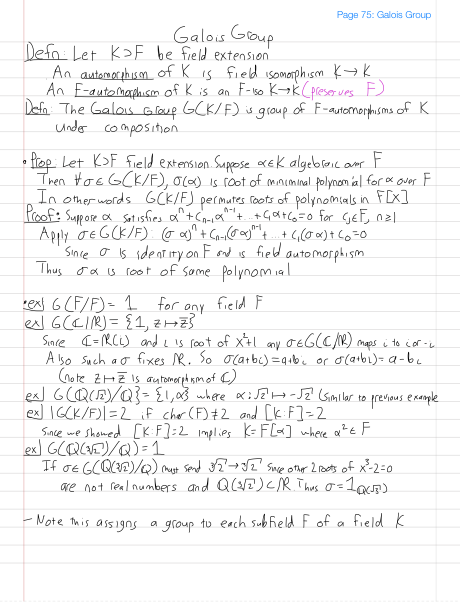 Page 75: Galois Group
Galois Group
Defn: Let K⊃F be field extension
An automorphism of K is field isomorphism K→K
An F-automorphism of K is an F-iso K→K (preserves F)
Defn: The Galois Group G(K/F) is group of F-automorphisms of K
under composition
• Prop Let K⊃F field extension. Suppose α∈K algebraic over F
Then ∀σ∈G(K/F), σ(α) is root of minimal polynomial for α over F
In other words G(K/F) permutes roots of polynomials in F[x]
Proof: Suppose α satisfies αⁿ+cₙ₋₁αⁿ⁻¹+...+c₁α+c₀=0 for cⱼ∈F, n≥1
Apply σ∈G(K/F): (σα)ⁿ+cₙ₋₁(σα)ⁿ⁻¹+...+c₁(σα)+c₀=0
Since σ is identity on F and is field automorphism
Thus σα is root of same polynomial
• ex| G(F/F)=1 for any field F
ex| G(ℂ/ℝ)={1, z↦z̅}
Since ℂ=ℝ(i) and i is root of x²+1 any σ∈G(ℂ/ℝ) maps i to i or -i
Also such a σ fixes ℝ. So σ(a+bi)=a+bi or σ(a+bi)=a-bi
(note z↦z̅ is automorphism of ℂ)
ex| G(ℚ(√2)/ℚ)={1,α} where α:√2↦-√2 (similar to previous example
ex| |G(K/F)|=2 if char(F)≠2 and [K:F]=2
Since we showed [K:F]=2 implies K=F[α] where α²∈F
ex| G(ℚ(∛2)/ℚ)=1
If σ∈G(ℚ(∛2)/ℚ) must send ∛2→∛2 since other 2 roots of x³-2=0
are not real numbers and ℚ(∛2)⊂ℝ. Thus σ=1_ℚ(∛2)
- Note this assigns a group to each subfield F of a field K